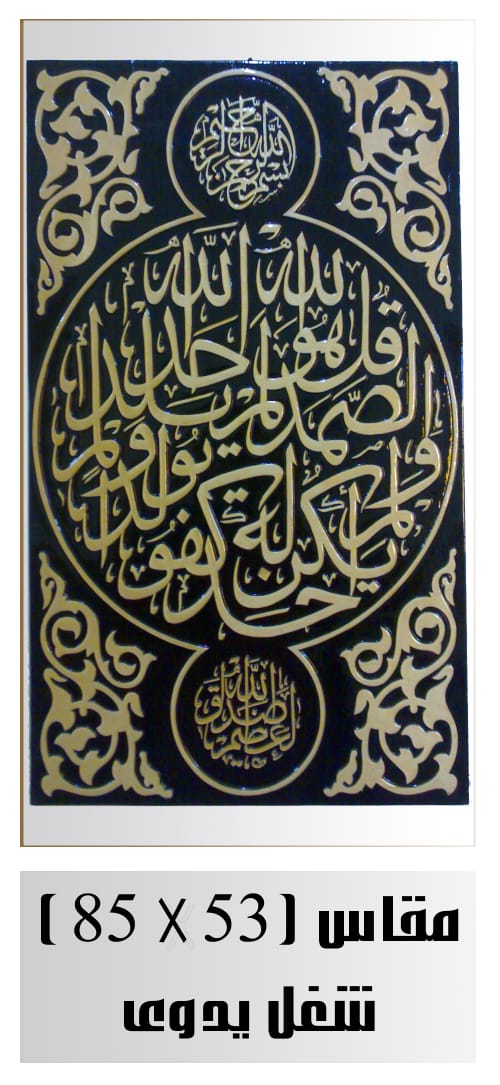 بسم الله الرحمن الرحيم
قل هو الله أحد الله
الصمد لم يلد ولم يولد
ولم يكن له كفوا أحد
صدق الله العظيم
مقاس ( 53 X 85 )
شغل يدوى